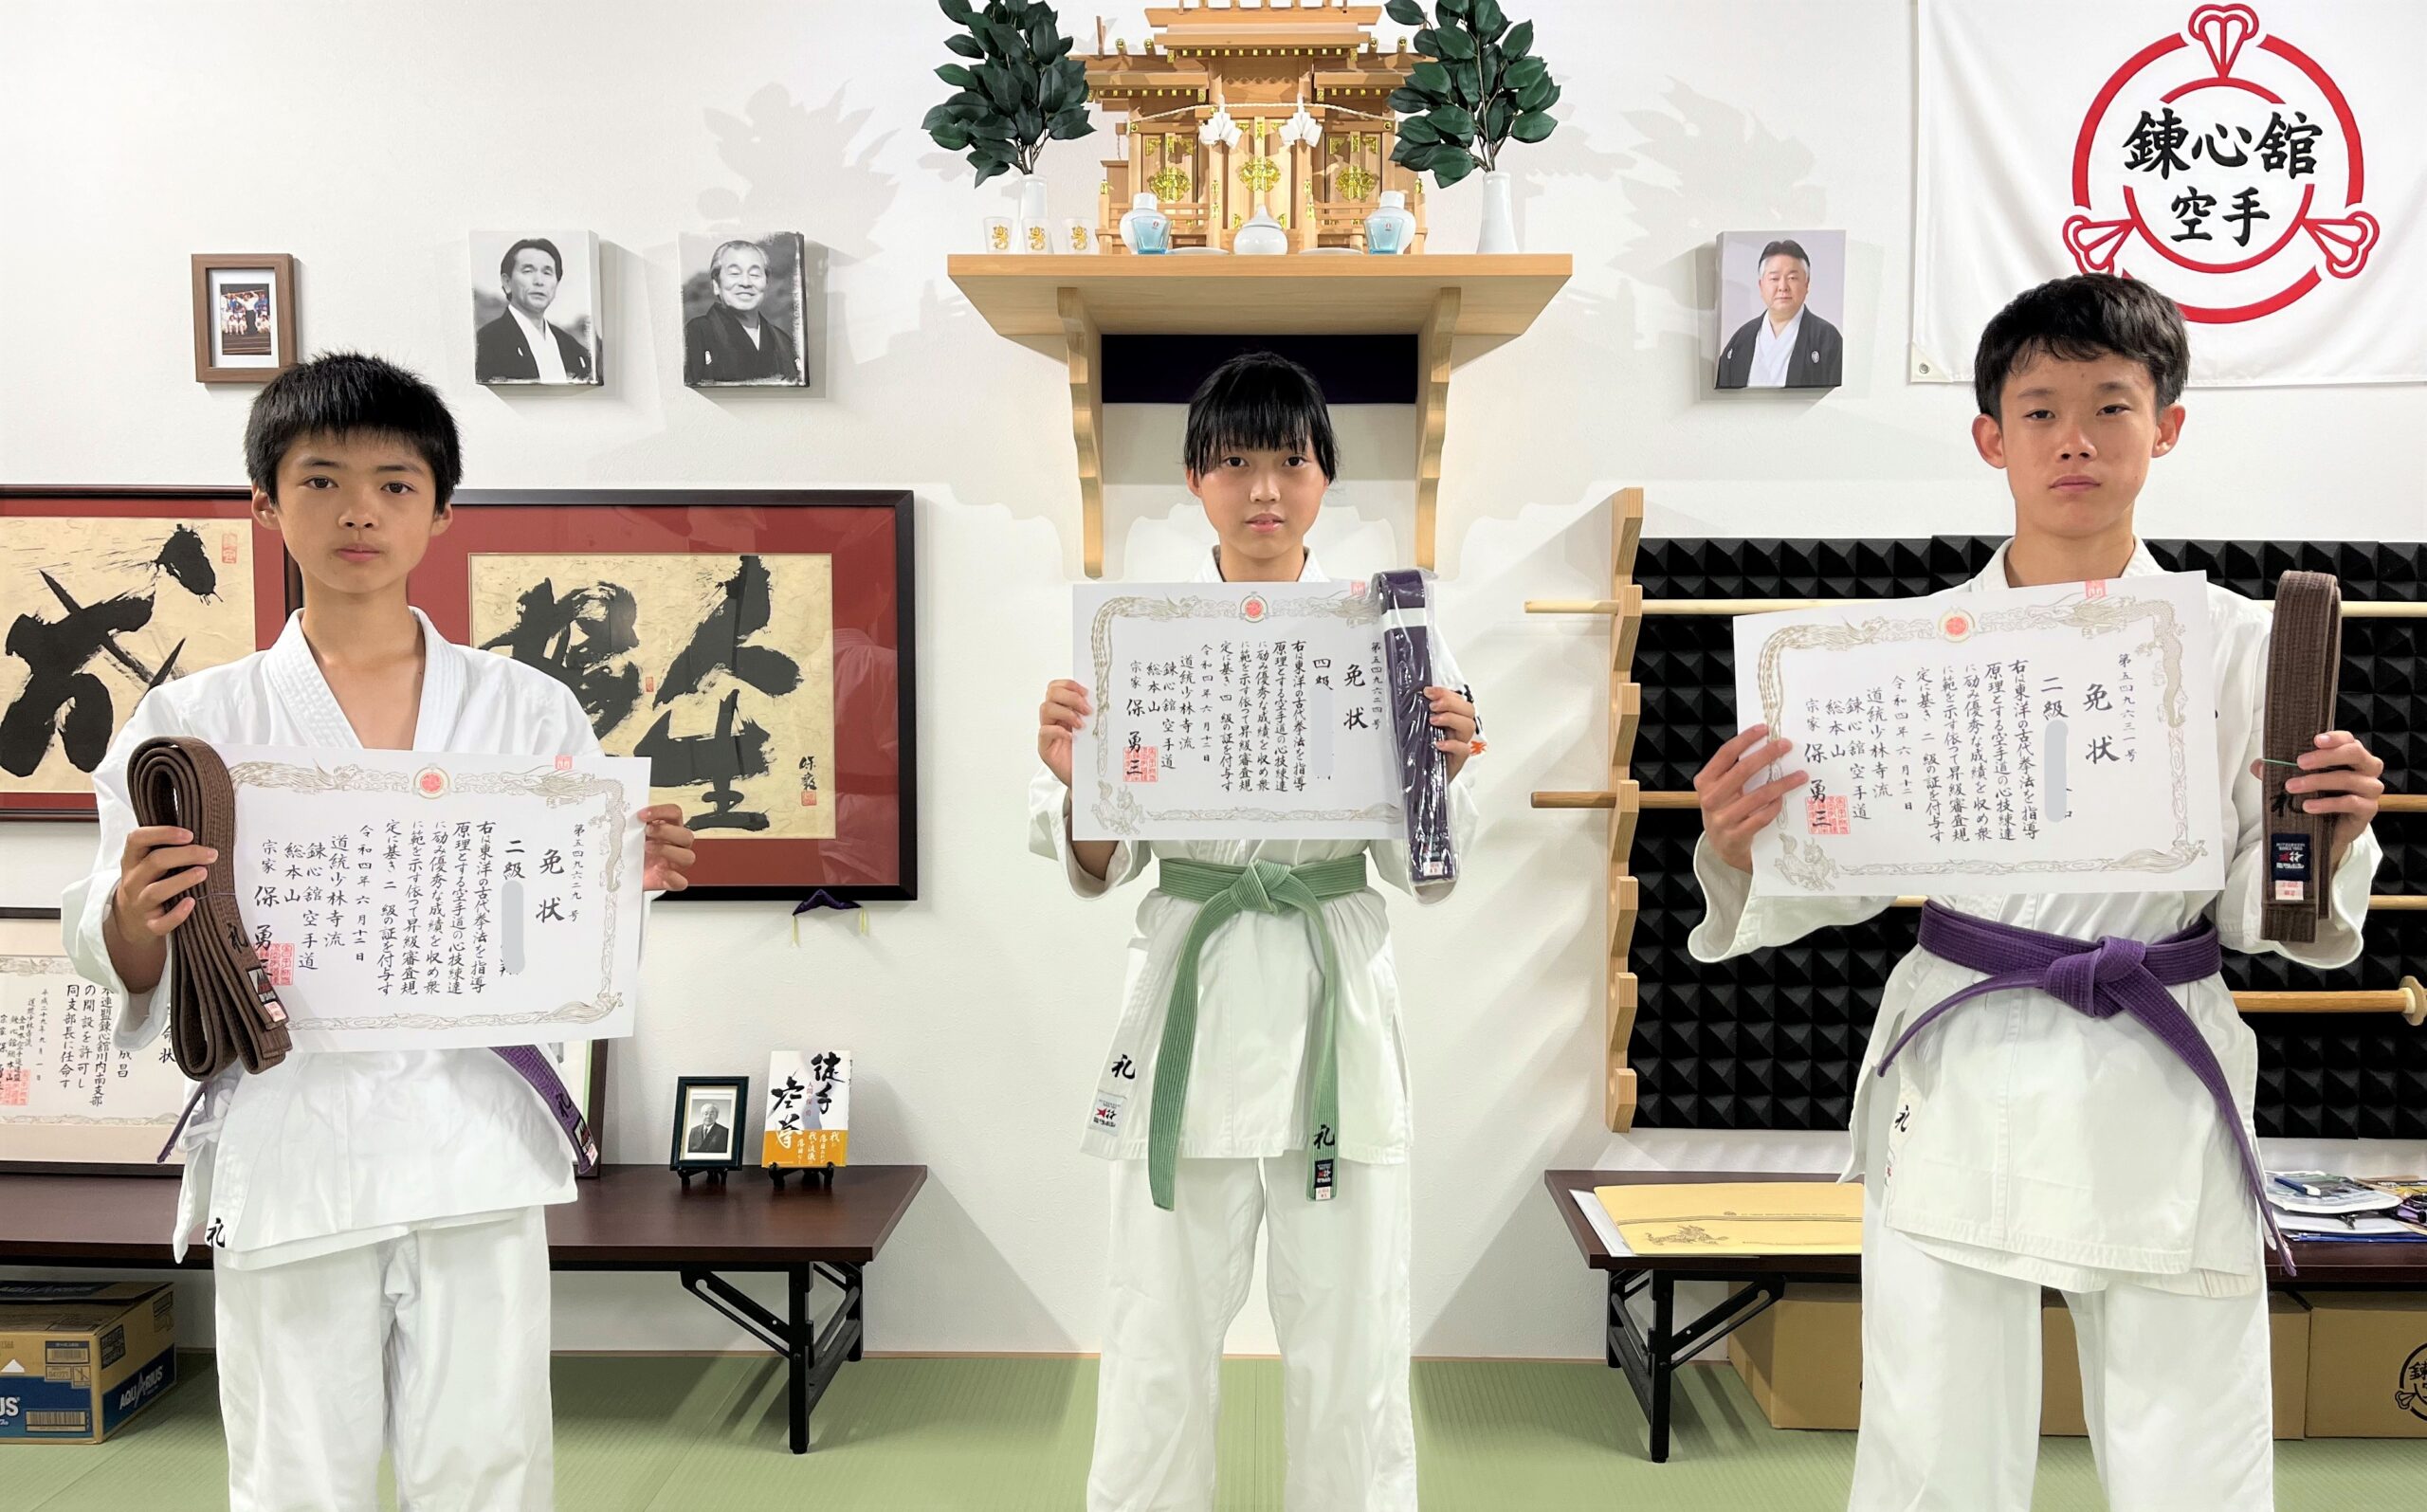 錬心舘
空手
人生
保巌
免状
第五四九六二九号
二級
右は東洋の古代拳法を指導
原理とする空手道の心技練達
に励み優秀な成績を収め衆
に範を示す依つて昇級審査規
定に基き二級の証を付与す
令和四年六月十二日
道統少林寺流
錬心舘空手道
総本山
宗家 保勇三
礼
礼
礼
免状
第五四九六二四号
四級
右は東洋の古代拳法を指導
原理とする空手道の心技練達
に励み優秀な成績を収め衆
に範を示す依つて昇級審査規
定に基き四級の証を付与す
令和四年六月十二日
道統少林寺流
錬心舘空手道
総本山
宗家 保勇三
礼
礼
免状
第五四九六三一号
二級
右は東洋の古代拳法を指導
原理とする空手道の心技練達
に励み優秀な成績を収め衆
に範を示す依つて昇級審査規
定に基き二級の証を付与す
令和四年六月十二日
道統少林寺流
錬心舘空手道
総本山
宗家 保勇三
礼
礼
連盟錬心舘川内南支部
の開設を許可し
同支部長に任命す
平成二十九年九月一日
徒手
空拳
AQUARIUS